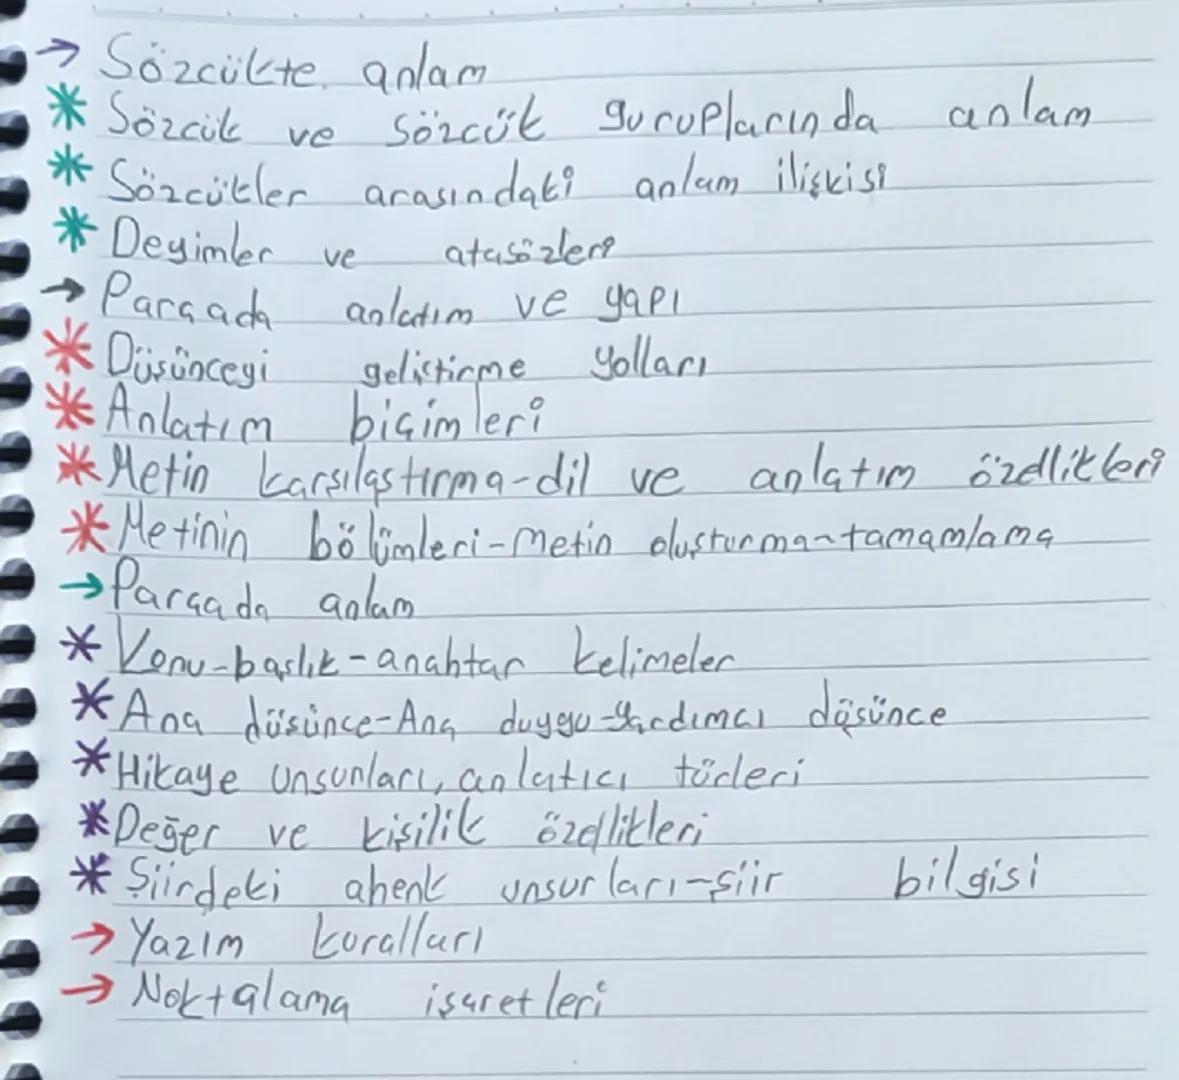 → Sözcükte anlam
* Sözcük ve sözcük guruplarında anlam
* Sözcükler arasındaki anlam ilişkisi
* Deyimler ve atasözleri
→ Parçada anlatım ve yapı
* Düşünceyi geliştirme yolları
* Anlatım biçimleri
* Metin karşılaştırma-dil ve anlatım özellikleri
* Metinin bölümleri-metin oluşturma-tamamlama
→ Parçada anlam
* Konu-başlık-anahtar kelimeler
* Ana düşünce-Ana duygu-Yardımcı düşünce
* Hikaye unsurları, anlatıcı türleri
* Değer ve kişilik özellikleri
* Şiirdeki ahenk unsurları-şiir bilgisi
→ Yazım kuralları
→ Noktalama işaretleri